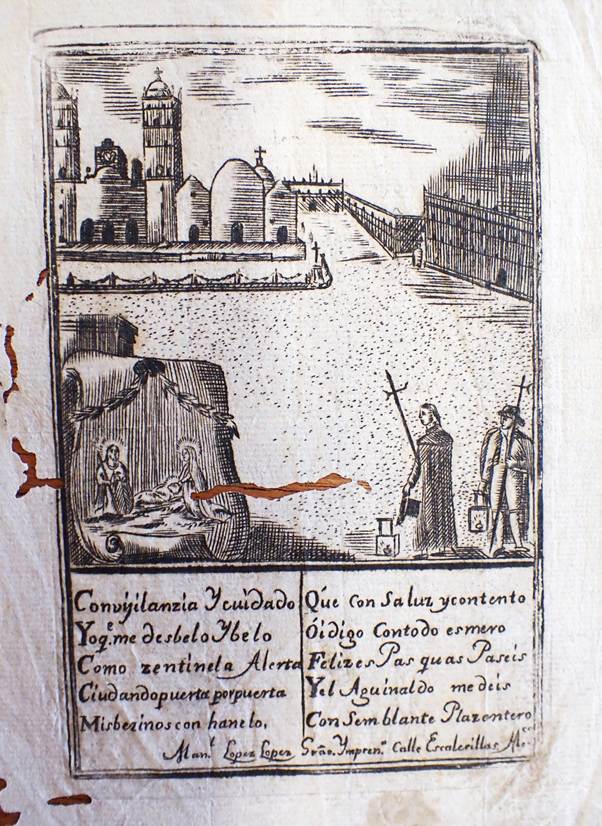 Convijilanzia Ycuidado
Yoq.e me desbelo Ybelo
Como zentinela Alerta
Ciudandopuerta porpuerta
Misbezinos con hanelo.
Que con Saluz ycontento
Oi digo Contodo esmero
Felizes Pas quas Paseis
Yel Aguinaldo me deis
Con Semblante Plazentero
Man.l Lopez Lopez Grão. Ympren.n Calle Escalerillas